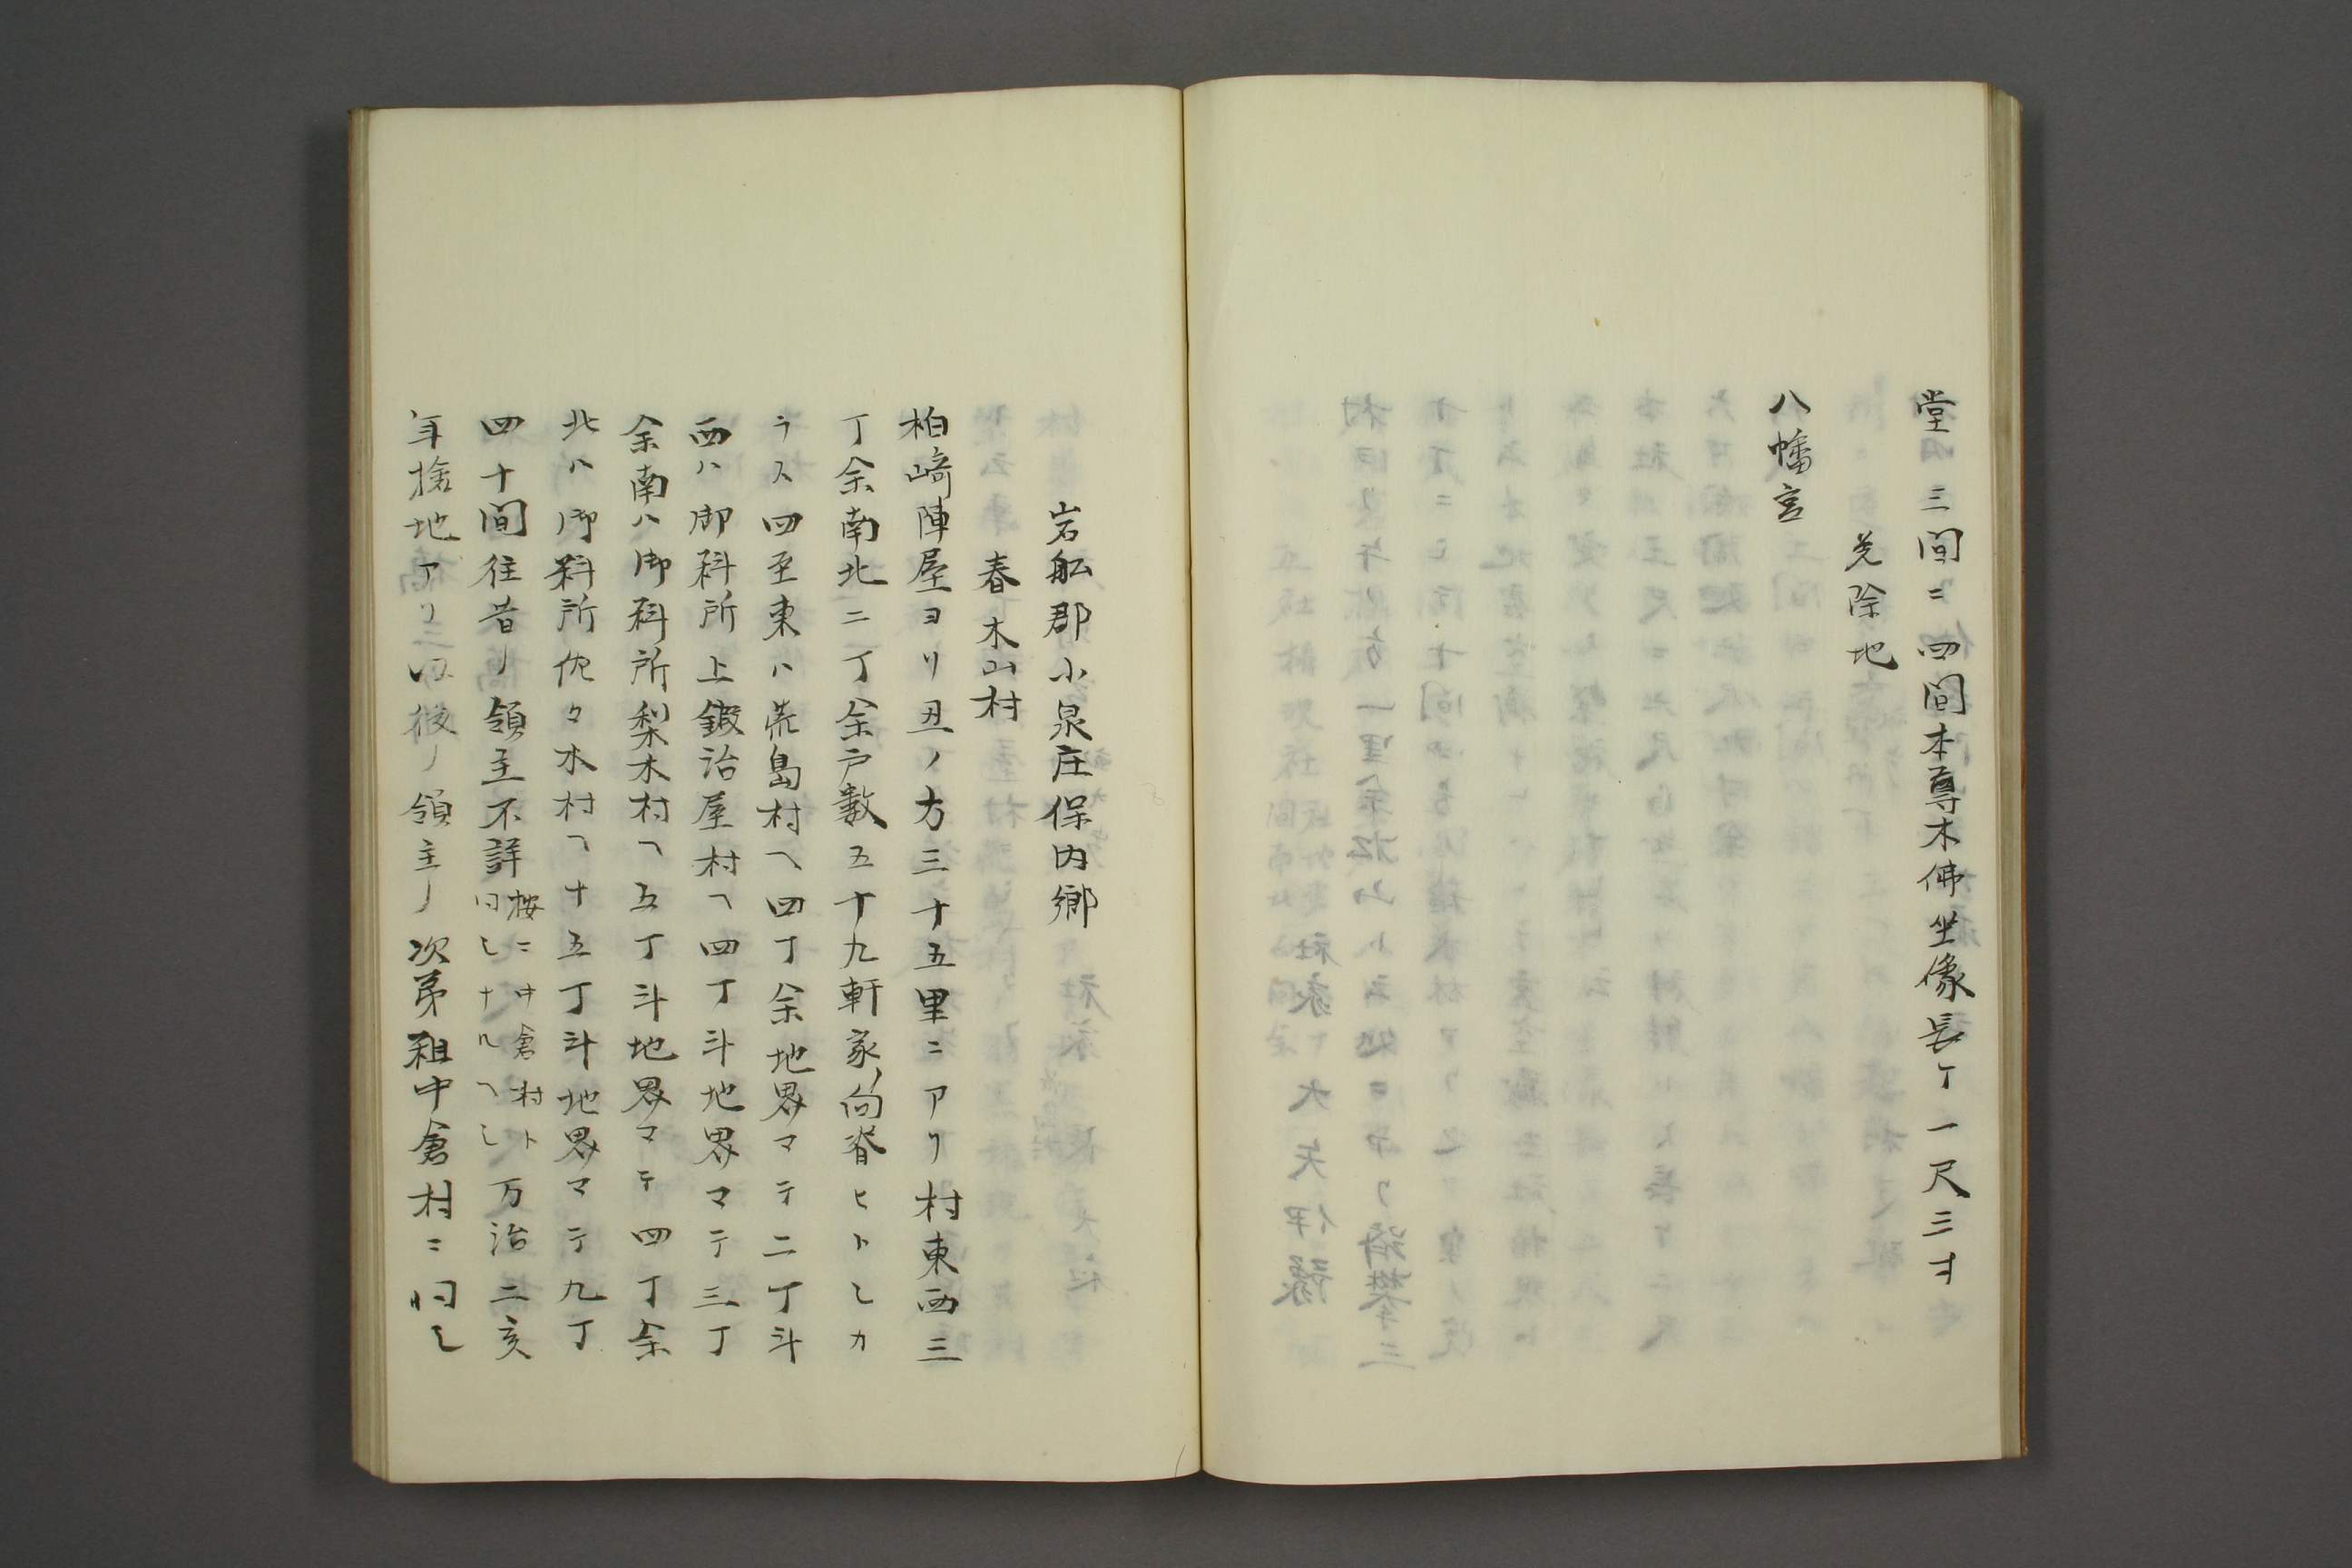 堂三間ニ四間本尊木佛坐像長ケ一尺三寸
免除地
八幡宮
岩舩郡小泉庄保内郷
春木山村
柏﨑陣屋ヨリ丑ノ方三十五里ニアリ村東西三
丁余南北二丁余戸數五十九軒家向脊ヒトシカ
ラス四至東ハ荒島村ヘ四丁余地界マテ二丁斗
西ハ御料所上鍜治屋村ヘ四丁斗地界マテ三丁
余南ハ御料所梨木村ヘ五丁斗地界マテ四丁余
北ハ御料所佐々木村ヘ十五丁斗地界マテ九丁
四十間往昔ノ領主不詳按ニ中倉村ト同シナルヘシ万治二亥
年撿地アリ以後ノ領主ノ次第租中倉村ニ同シ